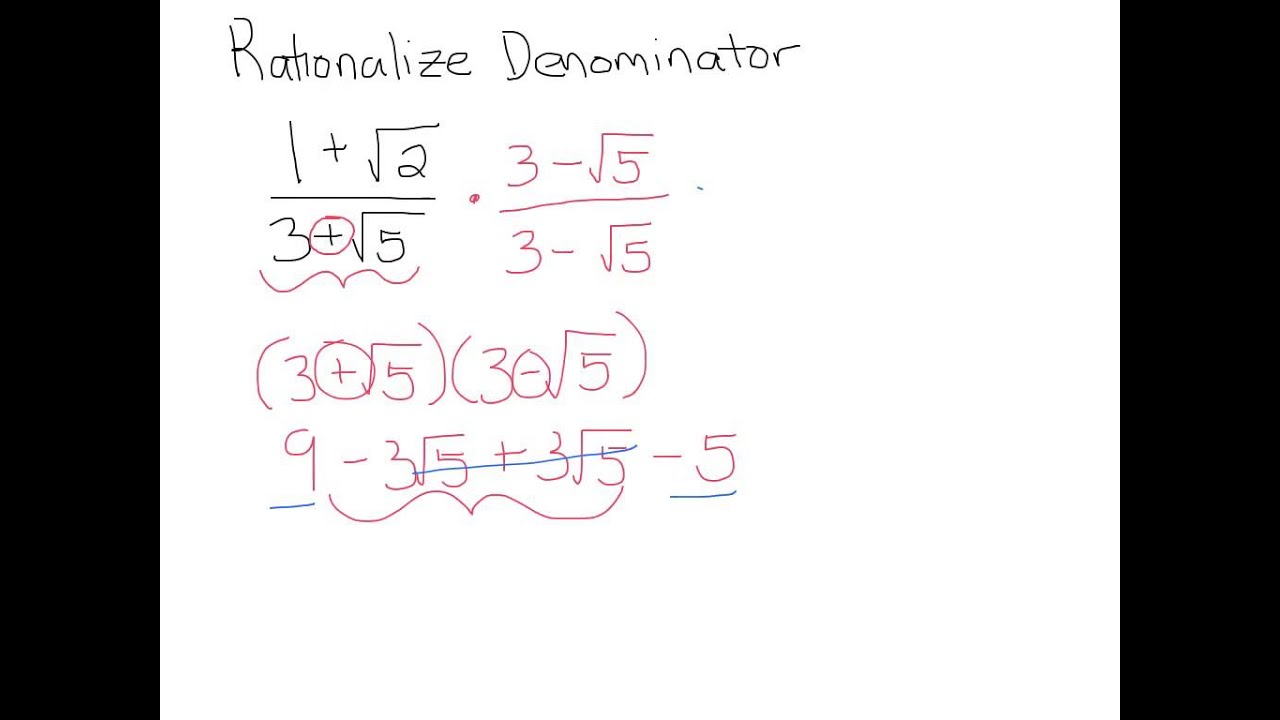 Rationalize Denominator
1 + √2 / 3 + √5 · 3 - √5 / 3 - √5
(3 + √5)(3 - √5)
9 - 3√5 + 3√5 - 5